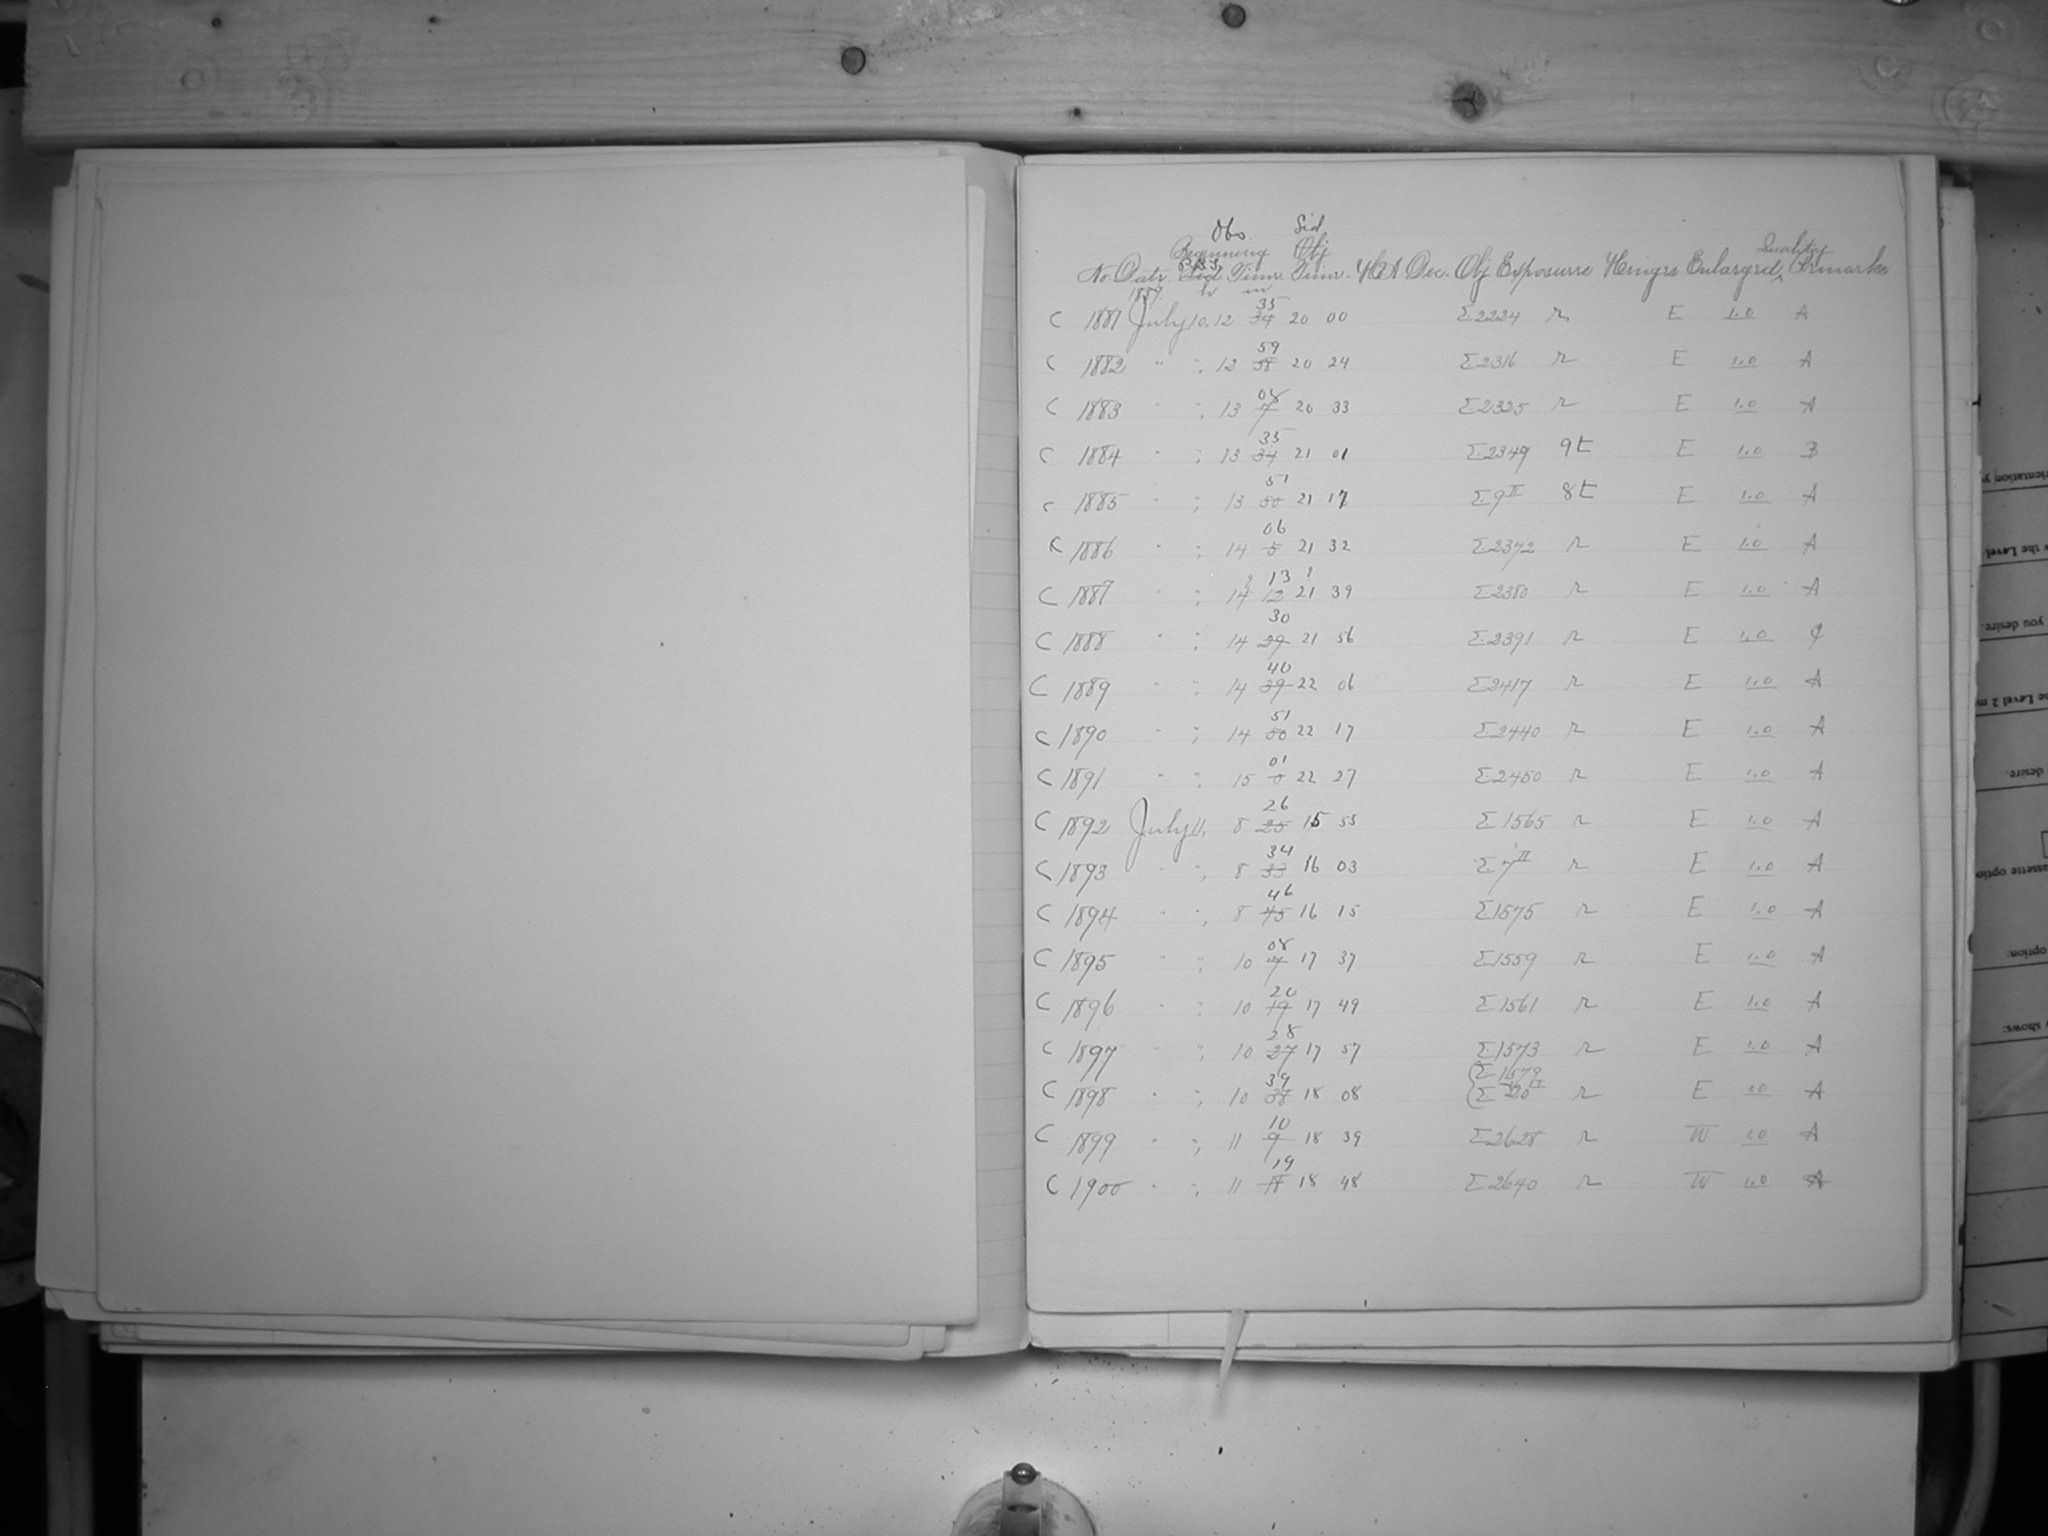 Obs Sid
Beginning Obj Quality
No. Date. Sid Time. Time. H.A. Dec. Obj Exposure Hinges Enlarged, Remarks
1889. h m
35
C 1881 July 10, 12 34 20 00 Σ2224 r E 1.0 A
59
C 1882 " ", 12 58 20 24 Σ2316 r E 1.0 A
08
C 1883 " ", 13 7 20 33 Σ2325 r E 1.0 A
35
C 1884 " ", 13 34 21 01 Σ2349 9t E 1.0 B
51
C 1885 " ", 13 50 21 17 Σ9II 8t E 1.0 A
06
C 1886 " ", 14 5 21 32 Σ2372 r E 1.0 A
? 13 ?
C 1887 " ", 14 12 21 39 Σ2380 r E 1.0 A
30
C 1888 " ", 14 29 21 56 Σ2391 r E 1.0 C
40
C 1889 " ", 14 39 22 06 Σ2417 r E 1.0 A
51
C 1890 " ", 14 50 22 17 Σ2440 r E 1.0 A
01
C 1891 " ", 15 0 22 27 Σ2450 r E 1.0 A
26
C 1892 July 11, 8 25 15 55 Σ1565 r E 1.0 A
34
C 1893 " ", 8 33 16 03 Σ7II r E 1.0 A
46
C 1894 " ", 8 45 16 15 Σ1575 r E 1.0 A
08
C 1895 " ", 10 7 17 37 Σ1559 r E 1.0 A
20
C 1896 " ", 10 19 17 49 Σ1561 r E 1.0 A
28
C 1897 " ", 10 27 17 57 Σ1573 r E 1.0 A
39 Σ1579
C 1898 " ", 10 38 18 08 Σ20I r E 1.0 A
10
C 1899 " ", 11 9 18 39 Σ2628 r W 1.0 A
19
C 1900 " ", 11 18 18 48 Σ2640 r W 1.0 A
you desire.
desire.
option:
shows: